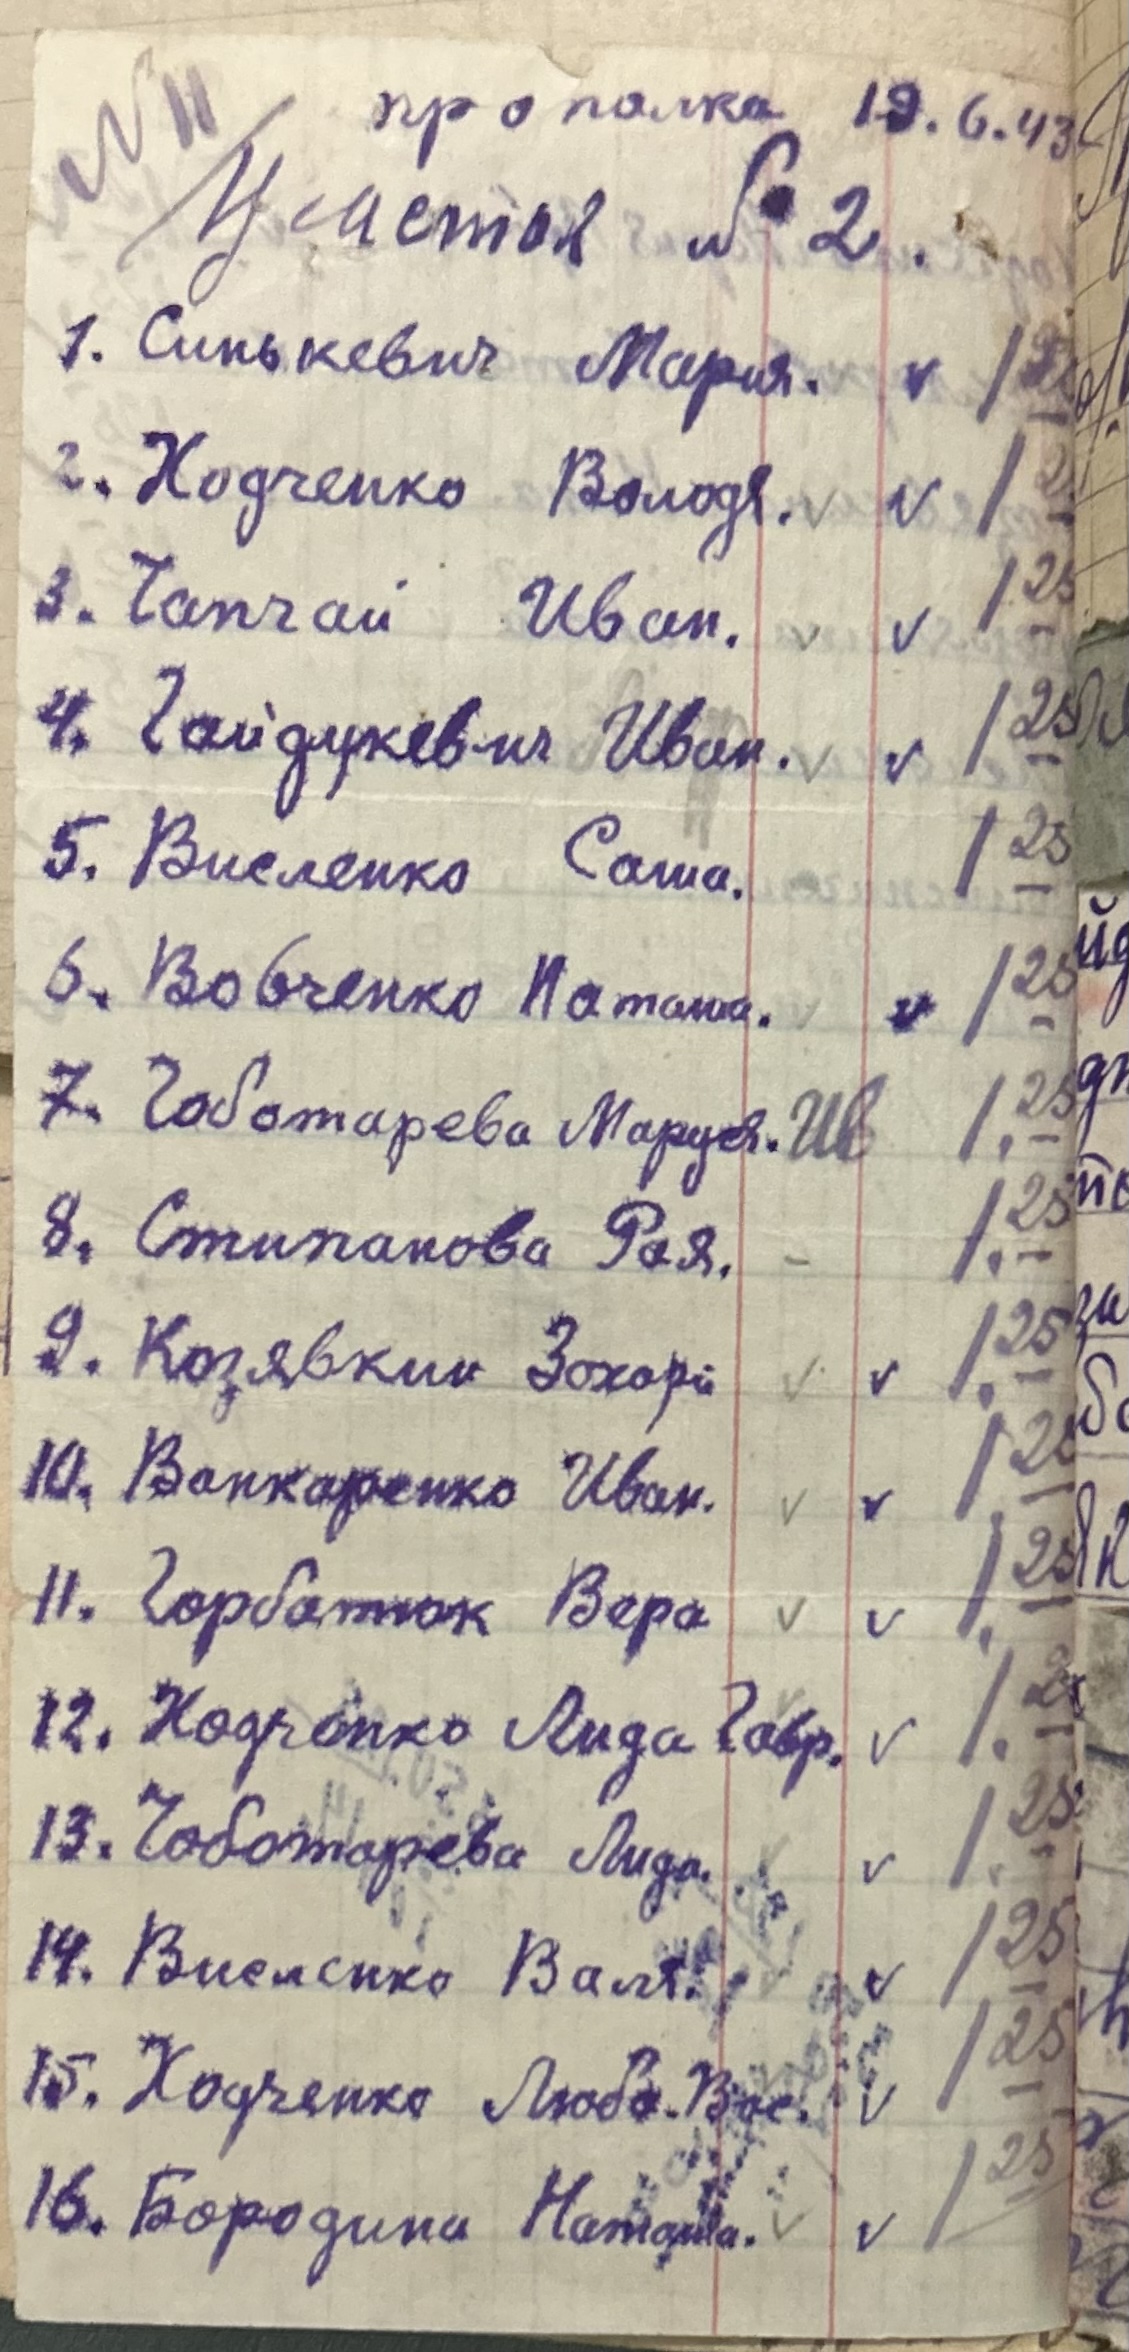 N 11
прополка 19.6.43
Участок № 2.
1. Синькевич Мария. v 1 25
2. Ходченко Володя. v v 1 25
3. Чапчай Иван. v v 1 25
4. Гайдукевич Иван. v v 1 25
5. Висленко Саша. 1 25
6. Вовченко Наташа. v v 1 25
7. Чоботарева Маруся. Ив 1. 25
8. Стипанова Рая. - 1. 25
9. Козявкин Зохарй v v 1. 25
10. Ванкаренко Иван. v v 1. 25
11. Горбатюк Вера v v 1. 25
12. Ходченко Лида Гавр. v 1. 25
13. Чоботарева Лида. v v 1. 25
14. Висленко Валя. v v 1 25
15. Ходченко Люба. Вас. v 1 25
16. Бородина Наташа. v v 1 25